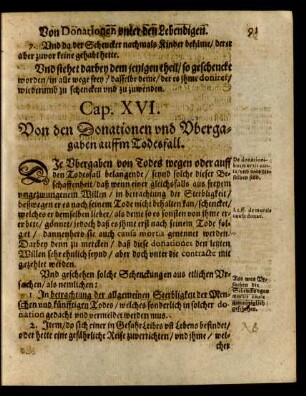 Von Donationen unter den Lebendigen. 91
7. Und da der Schencker nochmals Kinder bekäme / der er
aber zuvor keine gehabt hette.
Und stehet darbey dem jenigen theil / so geschenckt
worden / in alle wege frey / dasselbe deme / der es ihme doniret /
wiederumb zu schencken und zu zuwenden.
Cap. XVI.
Von den Donationen vnd Vberga-
gaben auffm Todesfall.
DJe Vbergaben von Todes wegen oder auff
den Todesfall belangende / seynd solche dieser Be-
schaffenheit / daß wenn einer gleichfalls aus freyem
ungezwungenem Willen / in betrachtung der Sterbligkeit /
deßwegen er es nach seinem Tode nicht behalten kan / schencket /
welches er demselben lieber / als deme so es sonsten von ihme er-
er bete / gönnet / jedoch daß es ihme erst nach seinem Tode fol-
get / dannenhero sie auch causa mortis genennet werden.
Darbey denn zu mercken / daß diese donationes den letzten
Willen sehr ehnlich seynd / aber doch unter die contracte mit
gezehlet werden.
Und geschehen solche Schenckungen aus etlichen Ur-
sachen / als nemlichen:
1. In betrachtung der allgemeinen Sterbligkeit der Men-
schen und künfftigen Todes / welches sonderlich in solcher do-
nation gedacht und vermeldet werden mus.
2. Item / do sich einer in Gefahr Leibes vñ Lebens befindet /
oder hette eine gefährliche Reise zuverrichten / und ihme / wel-
cher
De donationi-
bus
l. 35. ff. de mortis
causa donat.
Aus was Ur-
sachen die
Schenckungen
mortis causa
geschehen.